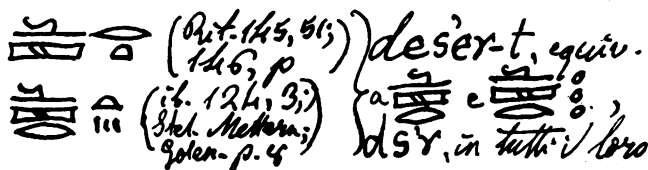 (Rit. 145, 51;
146, p
(ib. 124, 3;
Stel. Mettern.;
Golen. p. 8
deśer-t, equiv.
a e ,
dśr, in tutti i loro